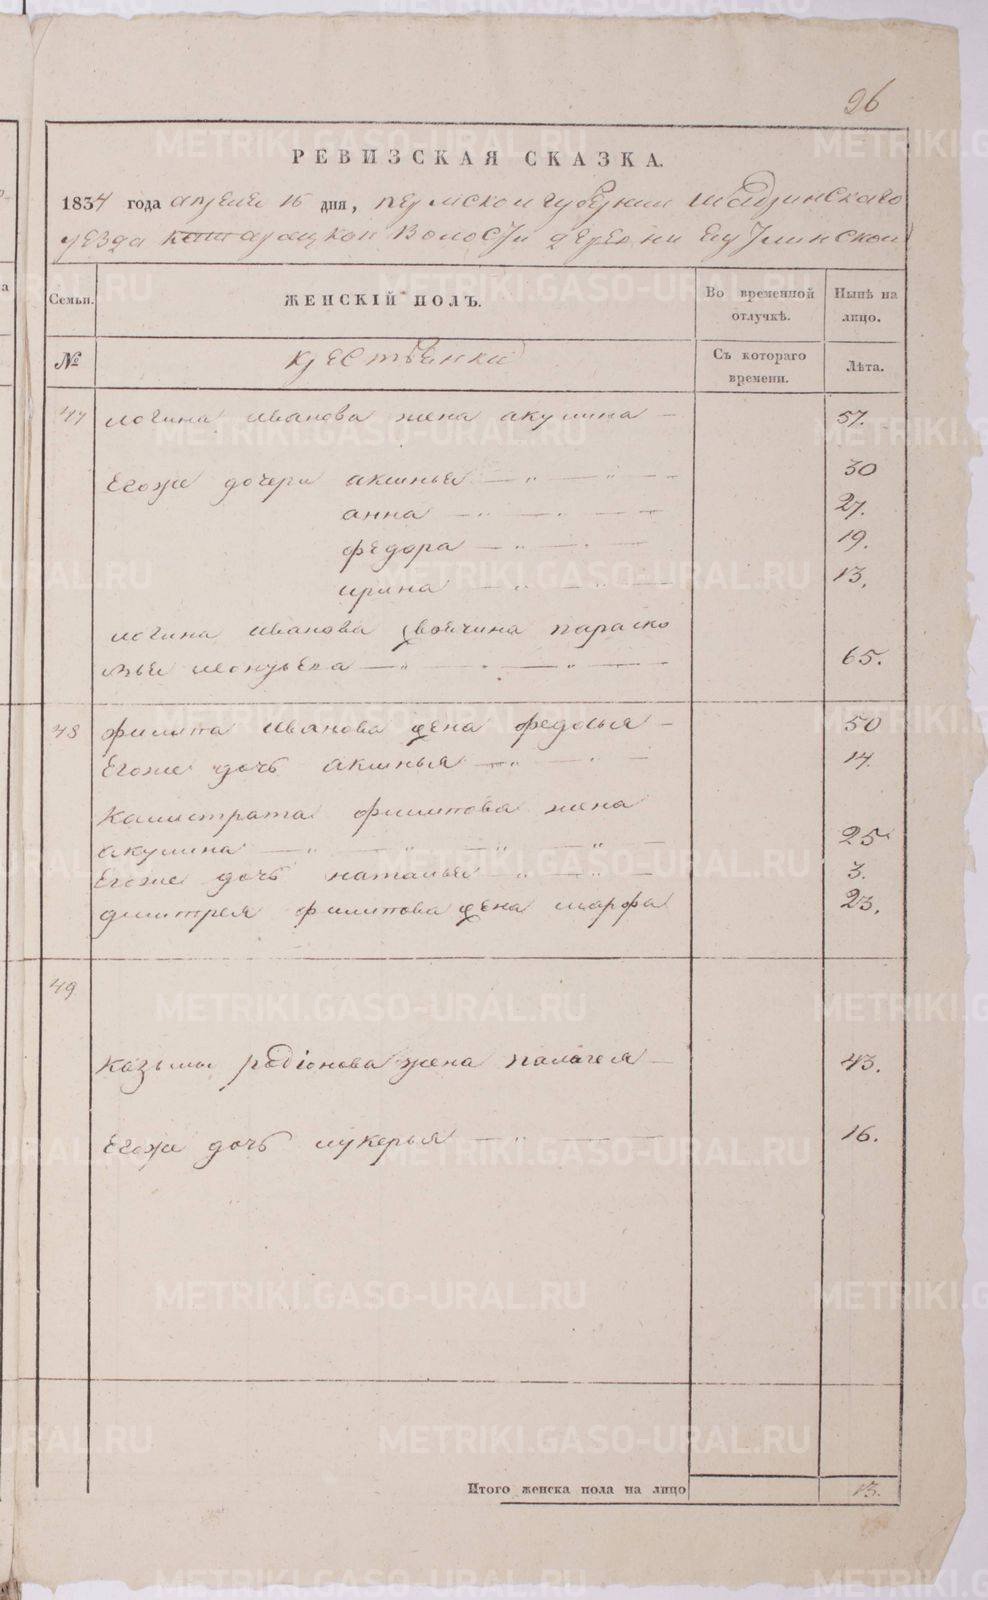 96
РЕВИЗСКАЯ СКАЗКА.
1834 года апреля 16 дня, пермской губернии шадринскаго
уезда волости деревни
Семьи. ЖЕНСКІЙ ПОЛЪ. Во временной отлучкѣ. Нынѣ на лицо.
№ крестьянки Съ котораго времени. Лѣта.
47 логина иванова жена акулина — 57.
Егоже дочери аксинья — 30
анна — 27.
федора — 19.
ирина — 13.
логина иванова параско
вья — 65.
48 филипа иванова жена федосья — 50
Егоже дочь аксинья — 14.
Калистрата филипова жена
акулина — 25
Егоже дочь наталья — 3.
дмитрея филипова жена марфа 23.
49
Казьмы родіонова жена палагея — 43.
Егоже дочь лукерья — 16.
Итого женска пола на лицо 13.
METRIKI.GASO-URAL.RU